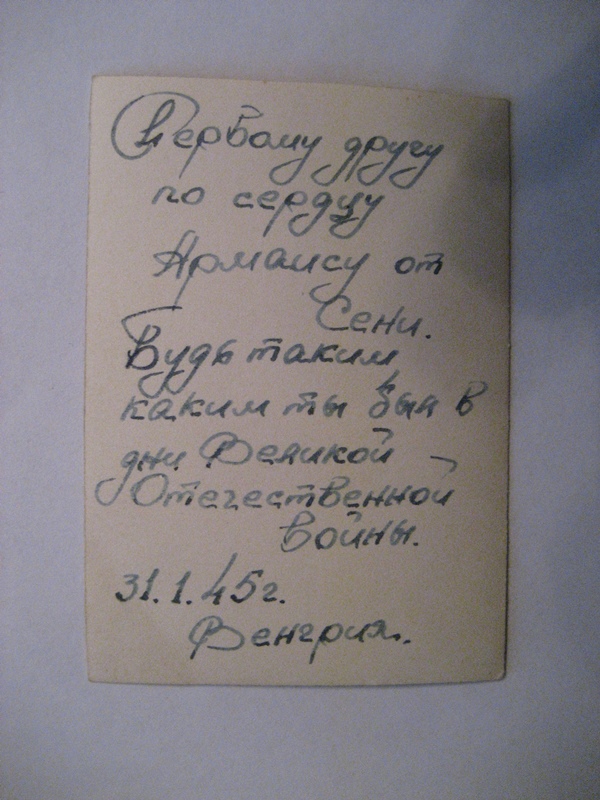 Первому другу
по сердцу
Армаису от
Сени.
Будь таким
каким ты был в
дни Великой
Отечественной
войны.
31.1.45г.
Венгрия.